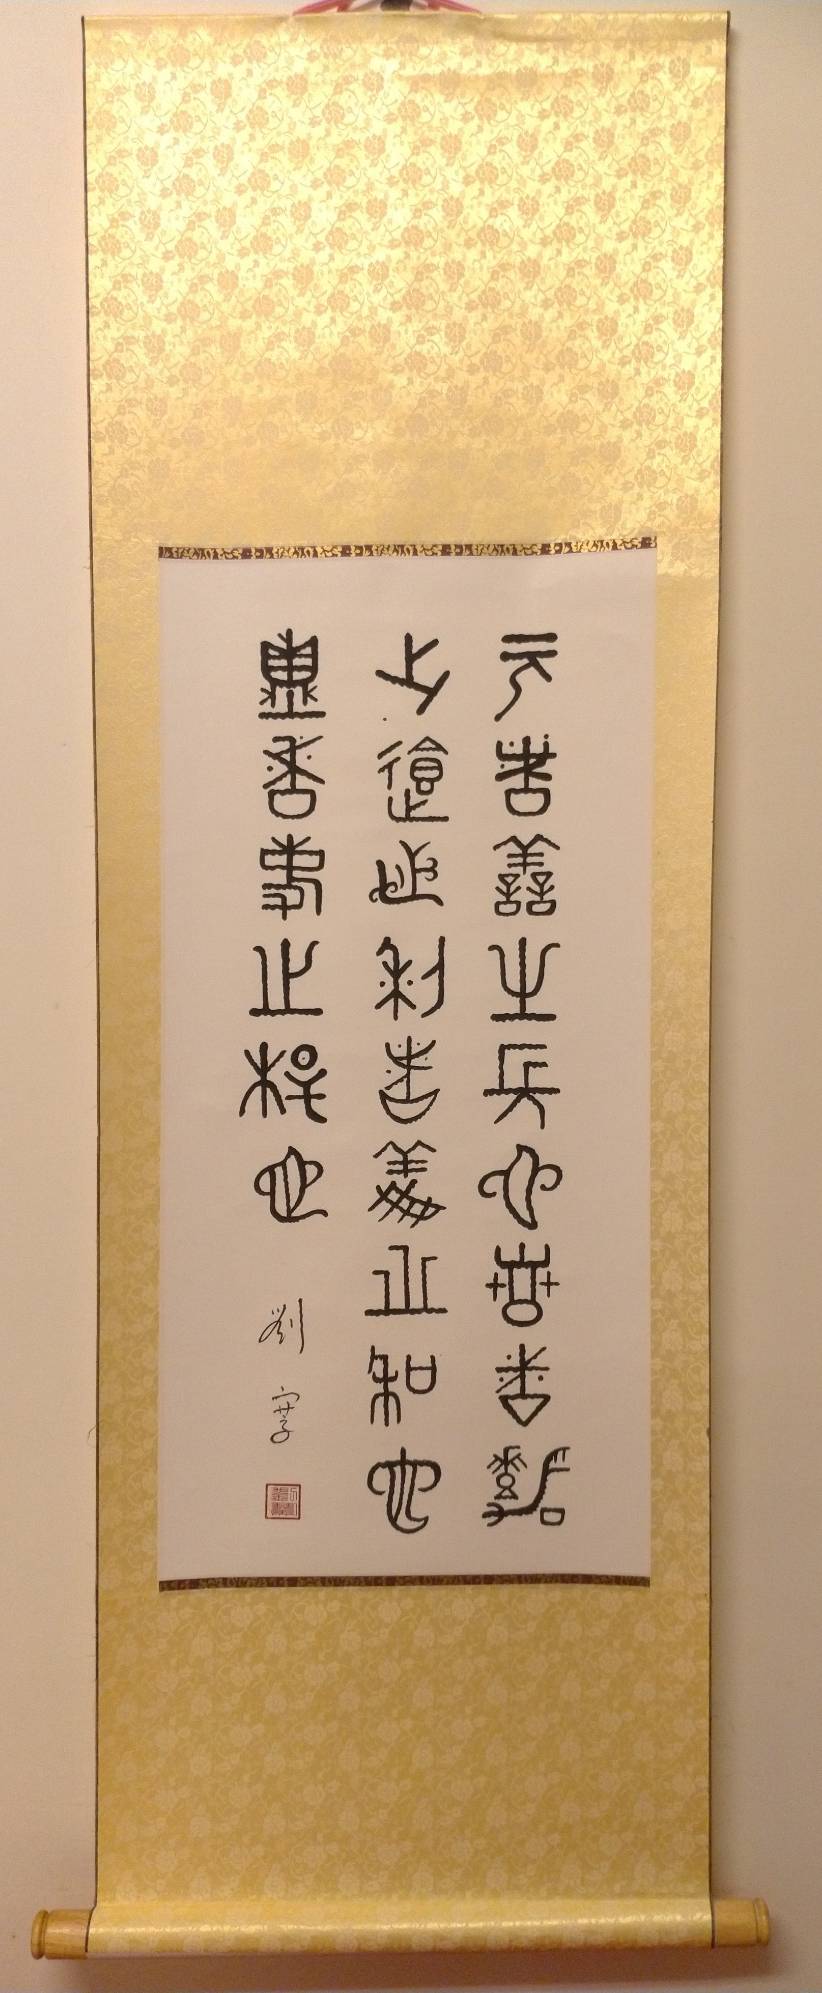 元者善之長也亨者嘉
之會也利者義之和也
貞者事之幹也
劉